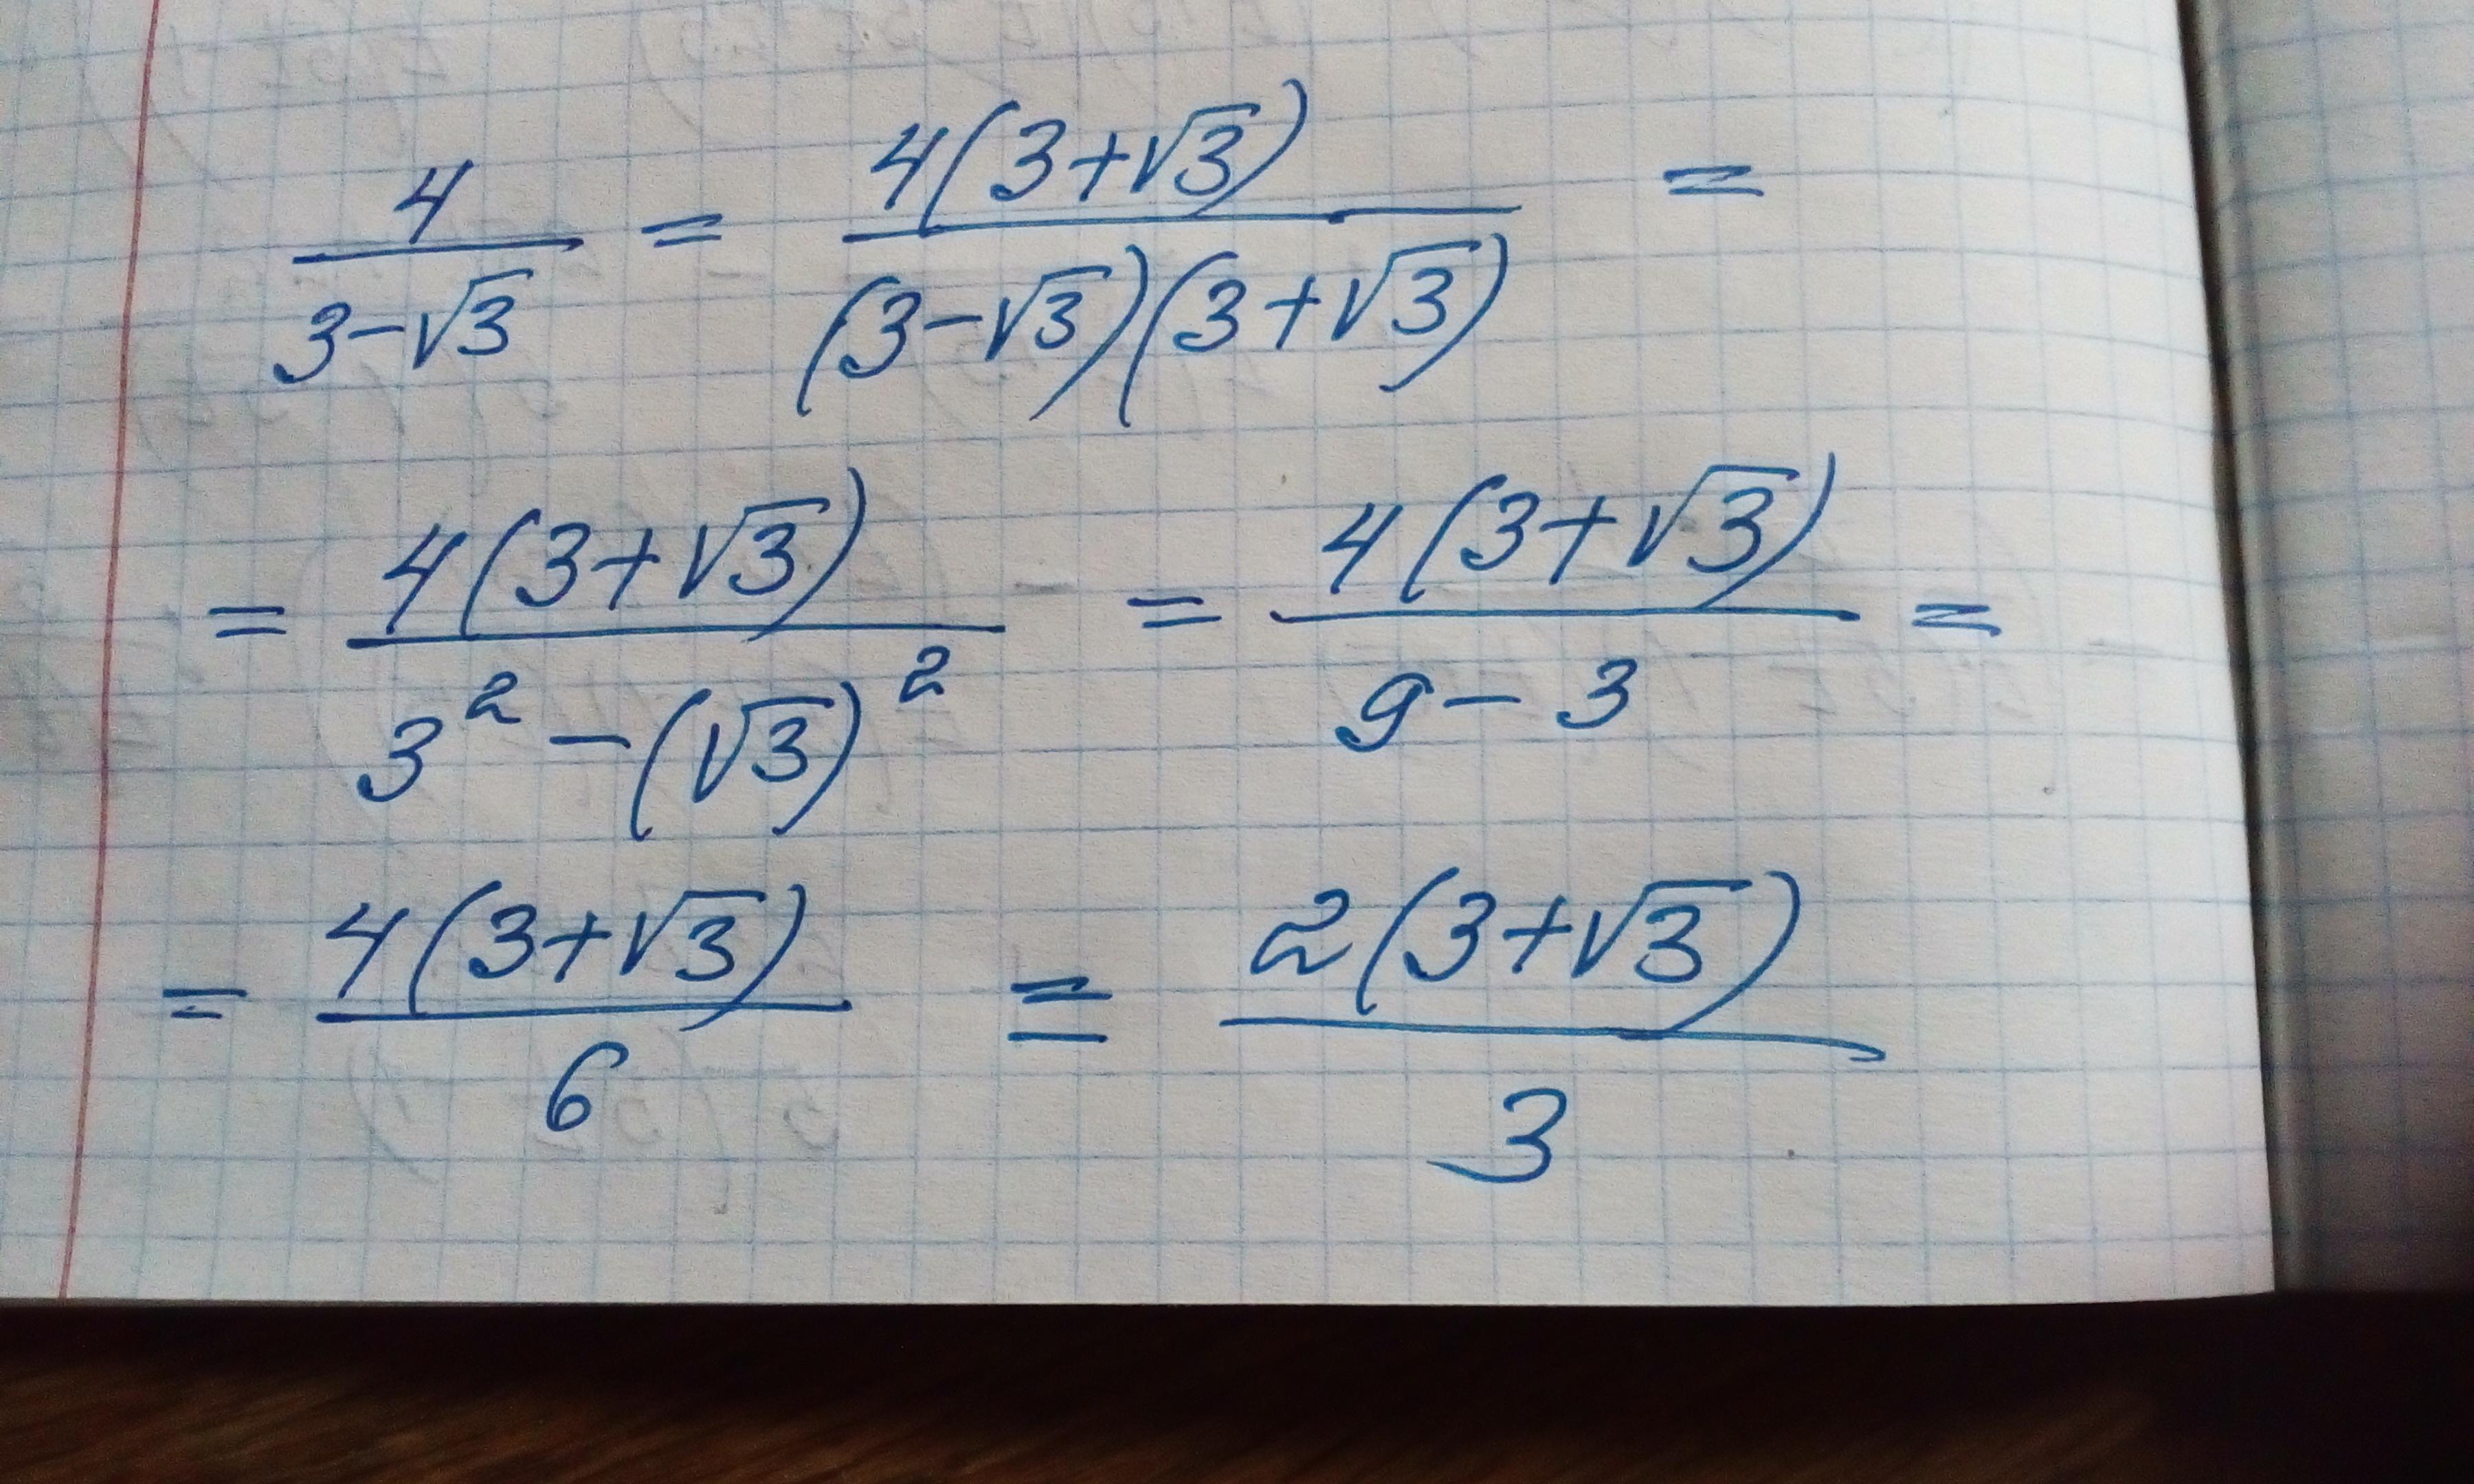 4/(3-√3) = 4(3+√3)/((3-√3)(3+√3)) =
= 4(3+√3)/(3²-(√3)²) = 4(3+√3)/(9-3) =
= 4(3+√3)/6 = 2(3+√3)/3